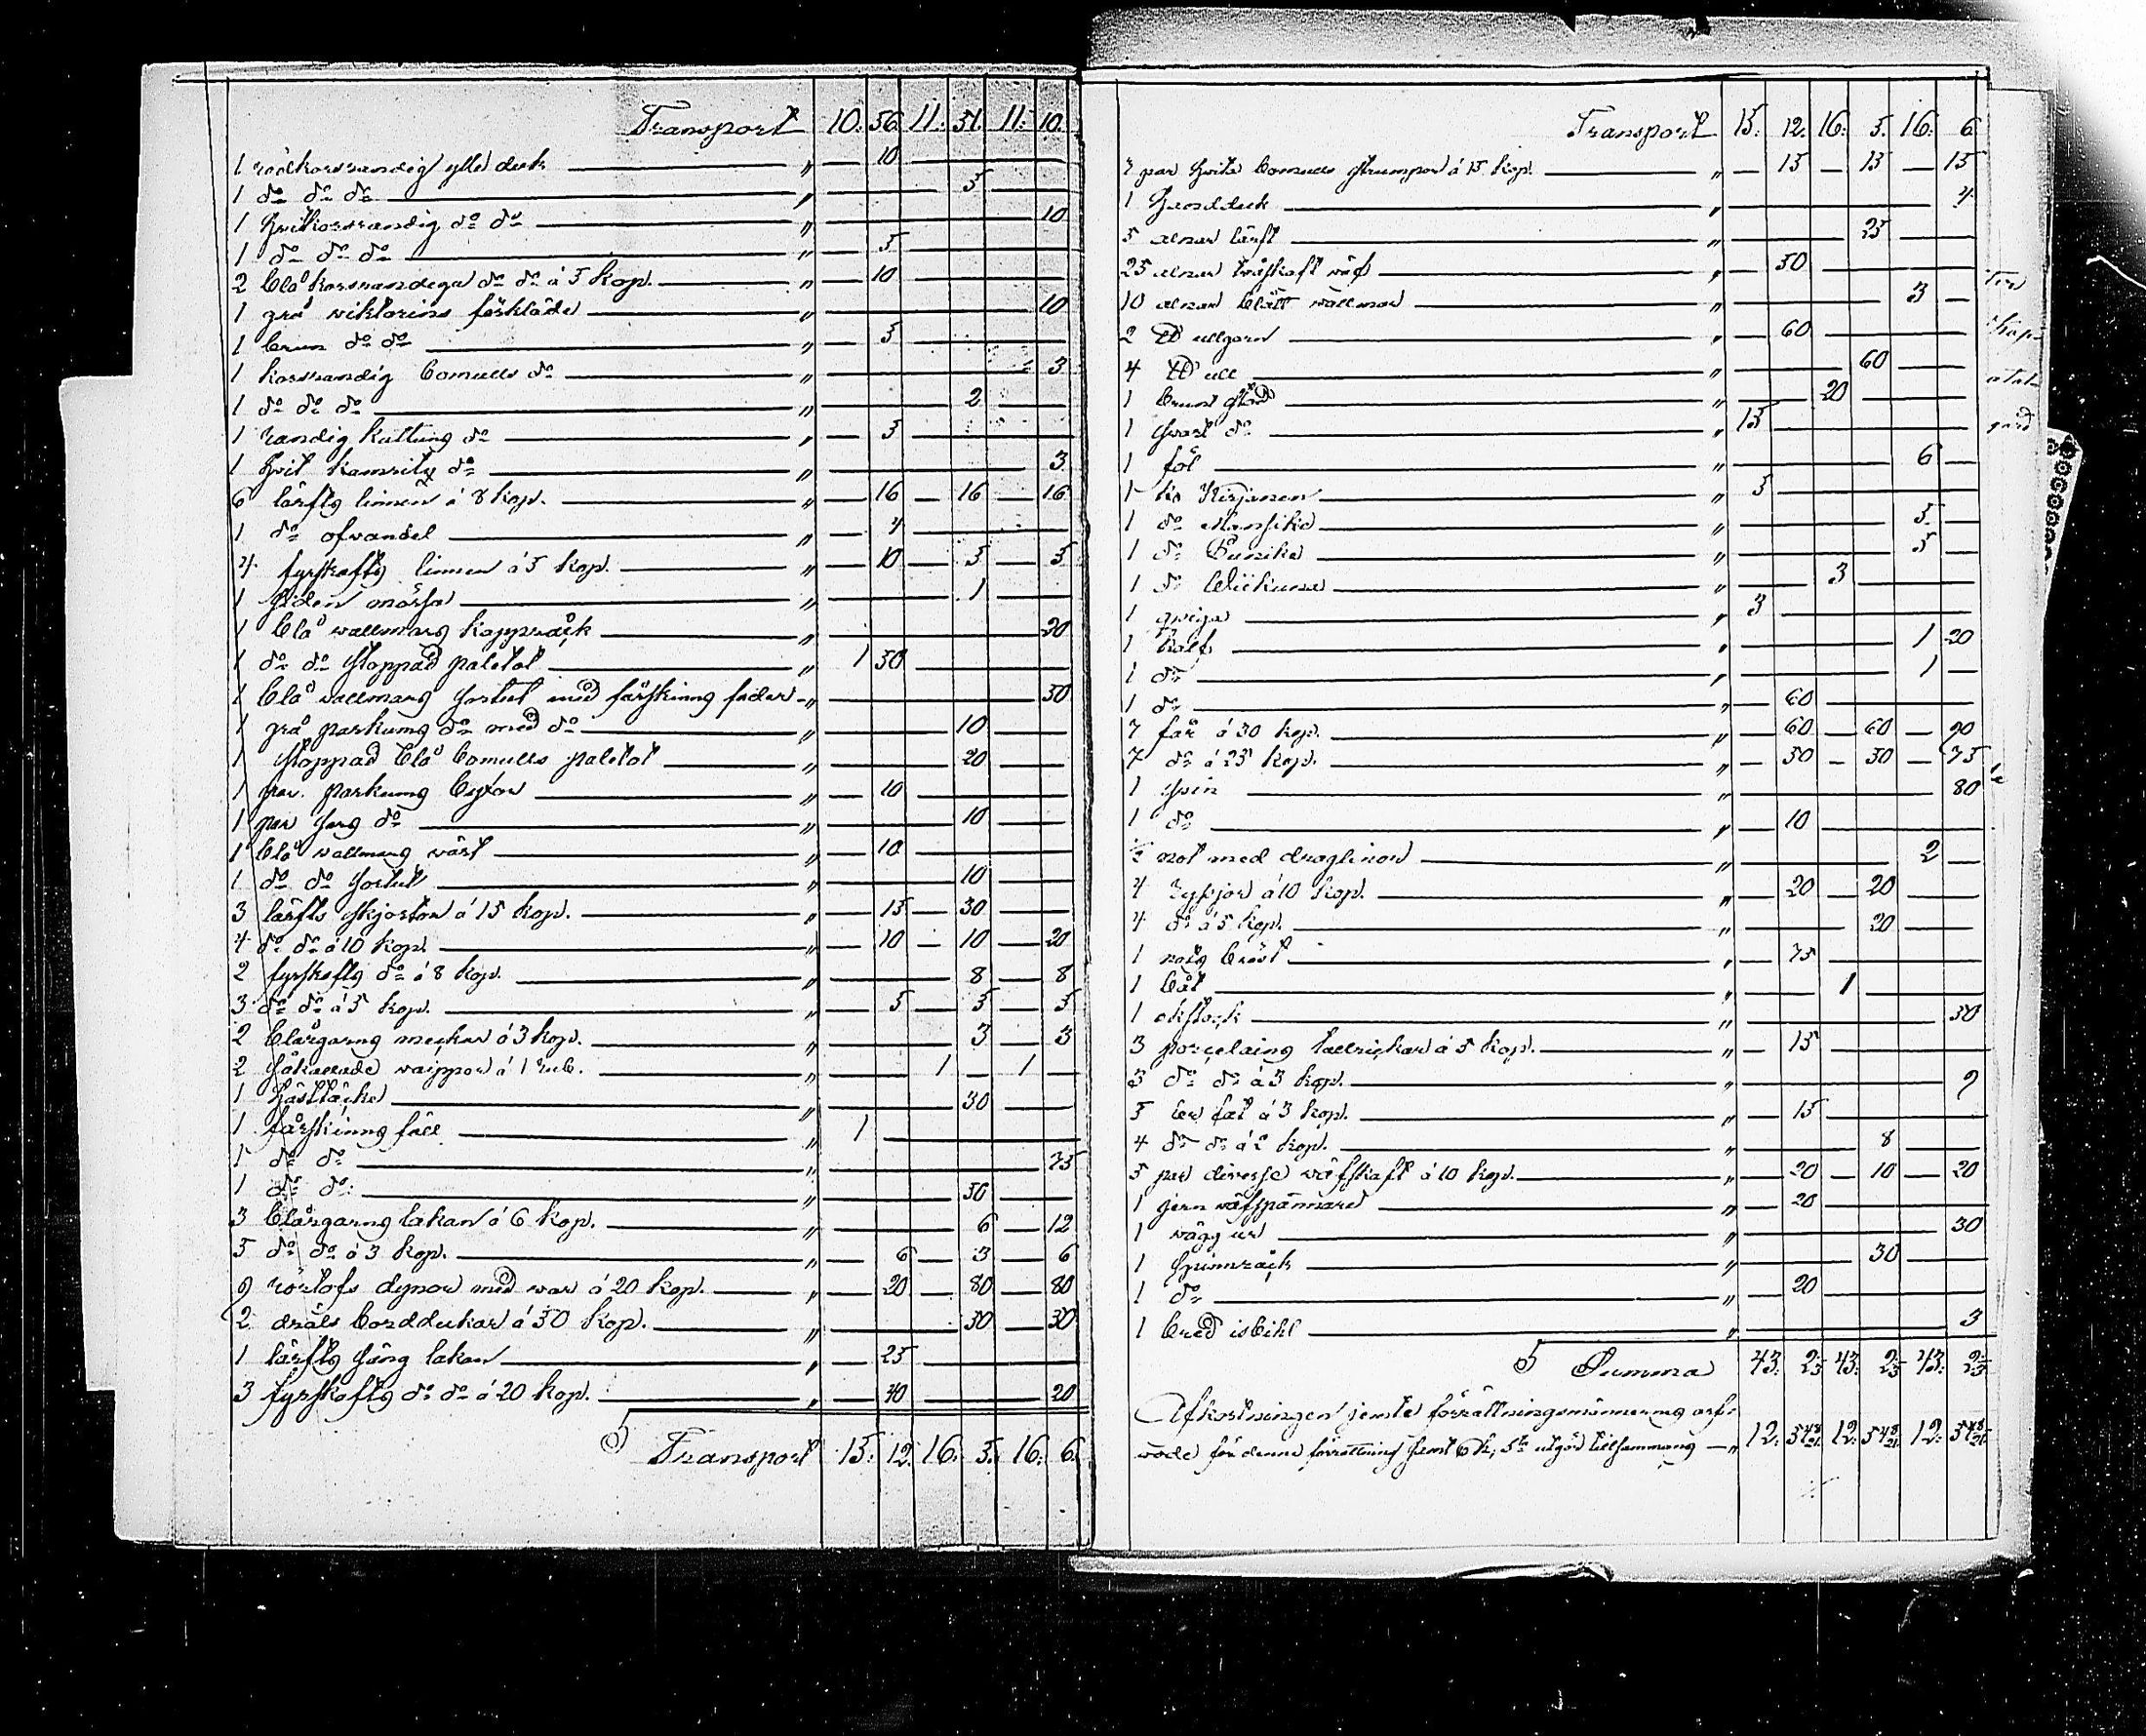 Transport 10. 56. 11. 51. 11. 10.
1 rödkorsrandig ylle duk " 10
1 do do do " 5
1 hvitkorsrandig do do " 10
1 do do do " 5
2 blåkorsrandiga do do á 5 kop. " 10
1 grå viktorins förkläde " 10
1 brun do do " 5
1 korsrandig bomulls do " 3
1 do do do " 2
1 randig kattuns do " 3
1 hvit do " 3
6 lärfts linnen á 8 kop. " 16 16 16
1 do ofvandel " 4
4 fyrskafts linnen á 5 kop. " 10 5 5
1 siden mössa " 1
1 blå wallmans kappräck " 20
1 do do stoppad paletot " 1 50
1 blå wallmans sortut med fårskinns foder " 50
1 grå parkums do med do " 10
1 stoppad blå bomulls paletot " 20
1 par parkums byxor " 10
1 par sars do " 10
1 blå wallmans wäst " 10
1 do do sortut " 10
3 lärfts skjortor á 15 kop. " 15 30
4 do do á 10 kop. " 10 10 20
2 fyrskafts do á 8 kop. " 8 8
3 do do á 5 kop. " 5 5 5
2 blårgarns meckor á 3 kop. " 3 3
2 waippor á 1 rub. " 1 1
1 hästtäcke " 30
1 fårskinns fäll " 1
1 do do " 75
1 do do " 50
3 blårgarns lakan á 6 kop. " 6 12
5 do do á 3 kop. " 6 3 6
9 dynor med war á 20 kop. " 20 80 80
2 dräls borddukar á 30 kop. " 30 30
1 lärfts säng lakan " 25
3 fyrskafts do do á 20 kop. " 40 20
Transport 15. 12. 16. 5. 16. 6.
Transport 15. 12. 16. 5. 16. 6
3 par hvita bomulls strumpor á 15 kop. " 15 15 15
1 handduk " 4
5 alnar lärft " 25
25 alnar tvåskaft wäf " 50
10 alnar blått wallmar " 3
2 ℔ ullgarn " 60
4 ℔ ull " 60
1 brunt stod " 20
1 swart do " 15
1 föl " 6
1 ko Kirjanen " 5
1 do Mansike " 5
1 do Punike " 5
1 do " 3
1 qwiga " 3
1 kalf " 1 20
1 do " 1
1 do " 60
7 får á 30 kop. " 60 60 90
7 do á 25 kop. " 50 50 75
1 svin " 80
1 do " 10
½ not med draglinor " 2
4 ryssjor á 10 kop. " 20 20
4 do á 5 kop. " 20
1 nots bräst " 75
1 båt " 1
1 ökstock " 50
3 porcelains tallrickar á 5 kop. " 15
3 do do á 3 kop. " 9
5 ler fat á 3 kop. " 15
4 do do á 2 kop. " 8
5 par diverse wäfskaft á 10 kop. " 20 10 20
1 jern wäfspännare " 20
1 wägg ur " 30
1 spinnräck " 30
1 do " 20
1 bred isbihl " 3
Summa 43. 23 43. 23 43. 23
Afkortningen jemte förrättningsmännernas arf-
wode för denne förrättning samt utgör tillsammans " 12. 12. 12.